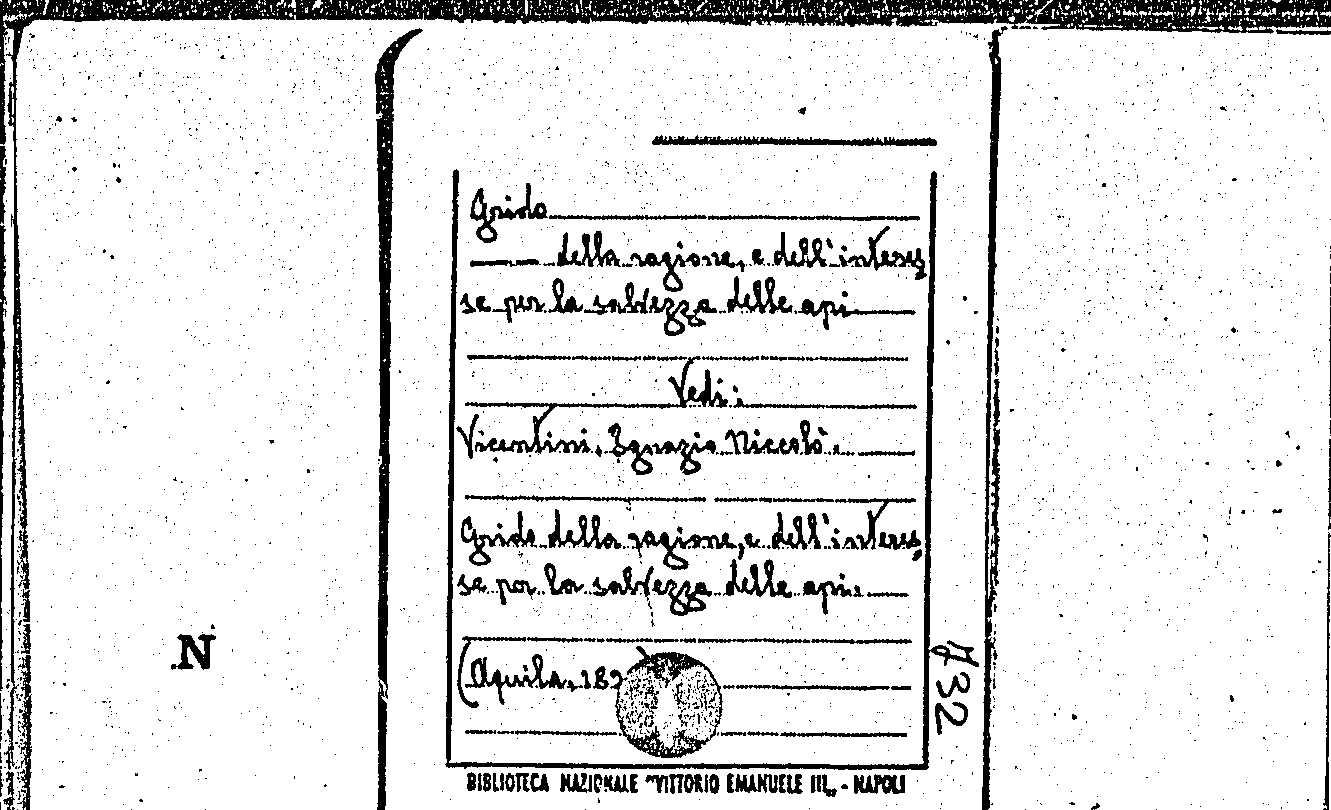 Grido
della ragione, e dell'interes,
se per la salvezza delle api.
Vedi:
Vicentini, Ignazio Niccolò.
Grido della ragione, e dell'interes,
se per la salvezza delle api.
(Aquila,
BIBLIOTECA NAZIONALE "VITTORIO EMANUELE III„ - NAPOLI
N
732